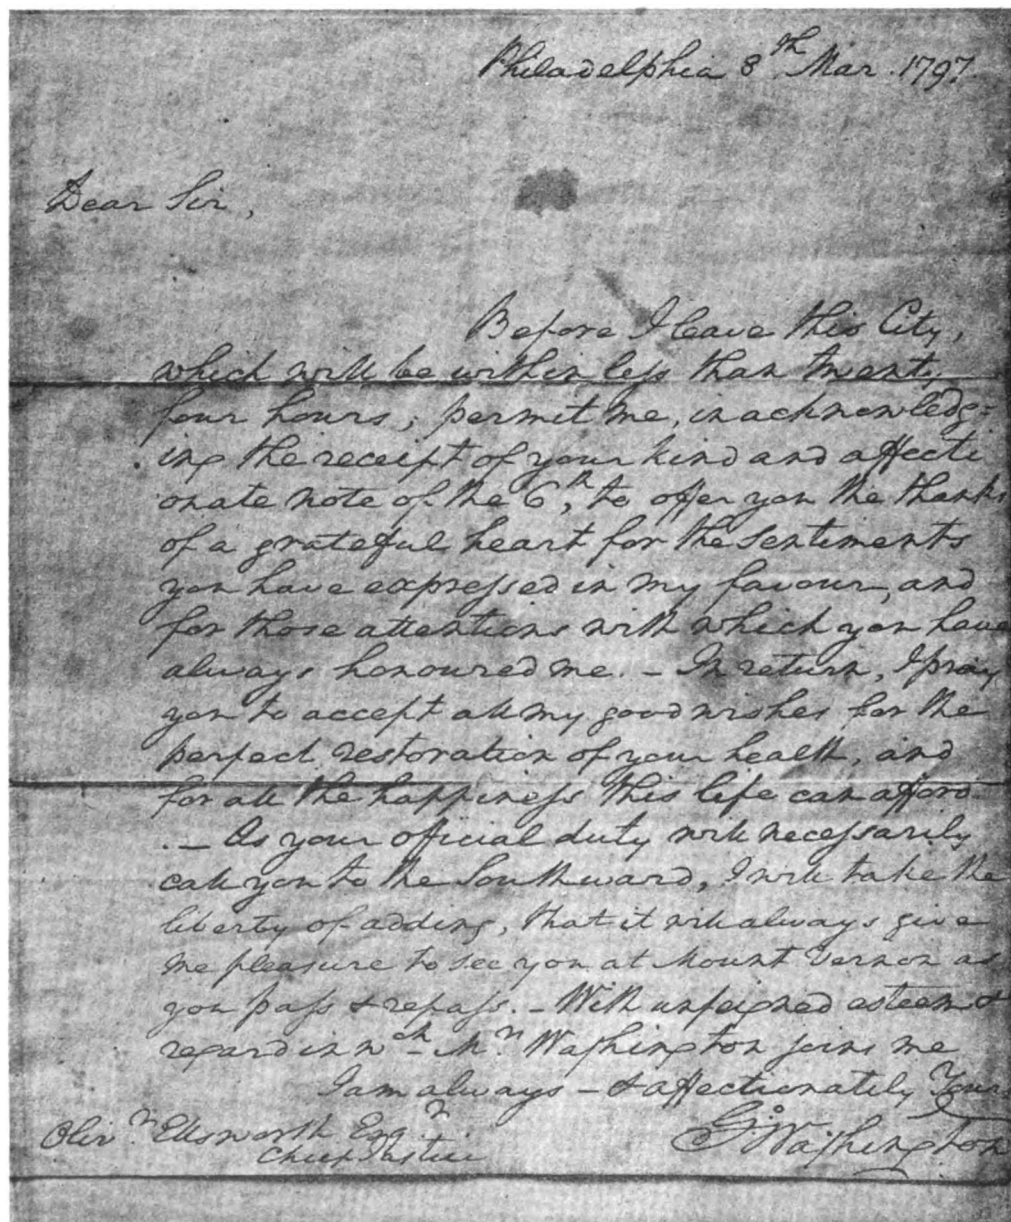 Philadelphia 8th Mar. 1797.
Dear Sir,
Before I leave this City,
which will be within less than twenty
four hours; permit me, in acknowledg=
ing the receipt of your kind and affecti
onate note of the 6th, to offer you the thanks
of a grateful heart for the sentiments
you have expressed in my favour, and
for those attentions with which you have
always honoured me. – In return, I pray
you to accept all my good wishes for the
perfect restoration of your health, and
for all the happiness this life can afford
. – As your official duty will necessarily
call you to the Southward, I will take the
liberty of adding, that it will always give
me pleasure to see you at Mount Vernon as
you pass & repass. – With unfeigned esteem &
regard in wch Mrs Washington joins me
I am always – & affectionately Yours
Olivr Ellsworth Esqr
Chief Justice
Go: Washington